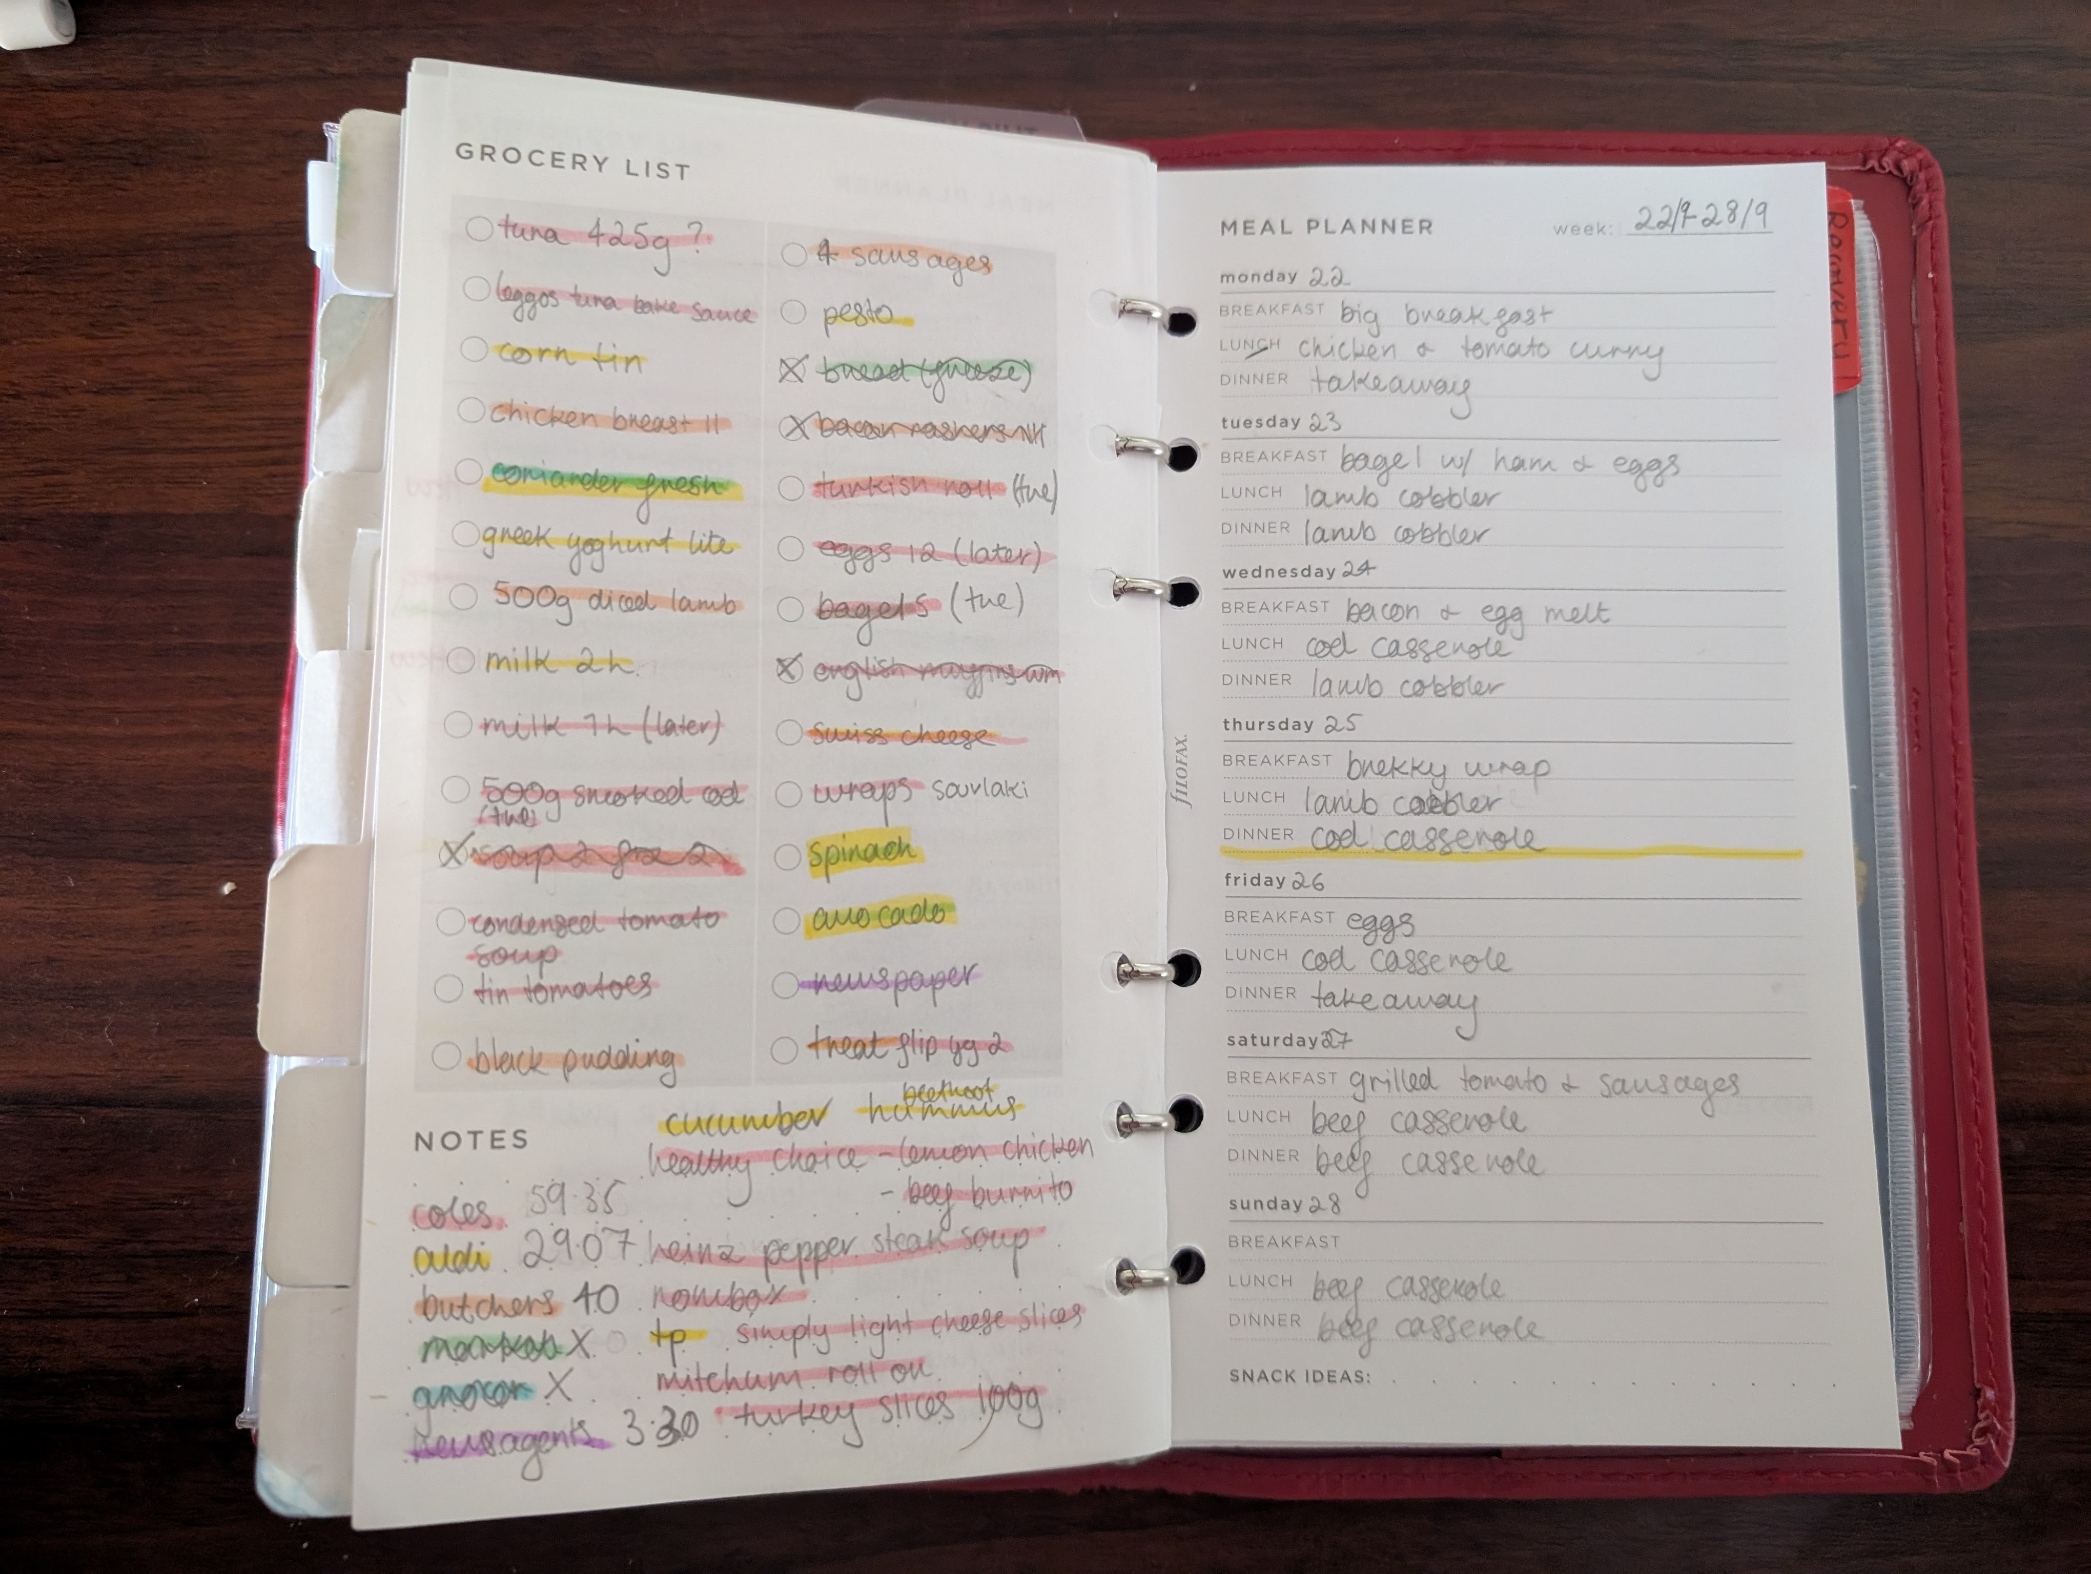 GROCERY LIST
tuna 425g ?
leggos tuna bake sauce
corn tin
chicken breast 11
coriander fresh
greek yoghurt lite
500g diced lamb
milk 2L
milk 1L (later)
500g smoked cod
(tue)
soup 2
condensed tomato
soup
tin tomatoes
black pudding
4 sausages
pesto
bread (freeze)
bacon rashers
turkish roll (tue)
eggs 12 (later)
bagels (tue)
english muffins wm
swiss cheese
wraps souvlaki
spinach
avocado
newspaper
treat flip yg 2
beetroot
cucumber hummus
NOTES
healthy choice - lemon chicken
- beef burrito
coles 59.35
aldi 29.07 heinz pepper steak soup
butchers 40
market X tp simply light cheese slices
grocer X mitchum roll on
newsagents 3.30 turkey slices 100g
MEAL PLANNER week: 22/9-28/9
monday 22
BREAKFAST big breakfast
LUNCH chicken & tomato curry
DINNER takeaway
tuesday 23
BREAKFAST bagel w/ ham & eggs
LUNCH lamb cobbler
DINNER lamb cobbler
wednesday 24
BREAKFAST bacon & egg melt
LUNCH cod casserole
DINNER lamb cobbler
thursday 25
BREAKFAST brekky wrap
LUNCH lamb cobbler
DINNER cod casserole
friday 26
BREAKFAST eggs
LUNCH cod casserole
DINNER takeaway
saturday 27
BREAKFAST grilled tomato & sausages
LUNCH beef casserole
DINNER beef casserole
sunday 28
BREAKFAST
LUNCH beef casserole
DINNER beef casserole
SNACK IDEAS:
filofax
Recovery